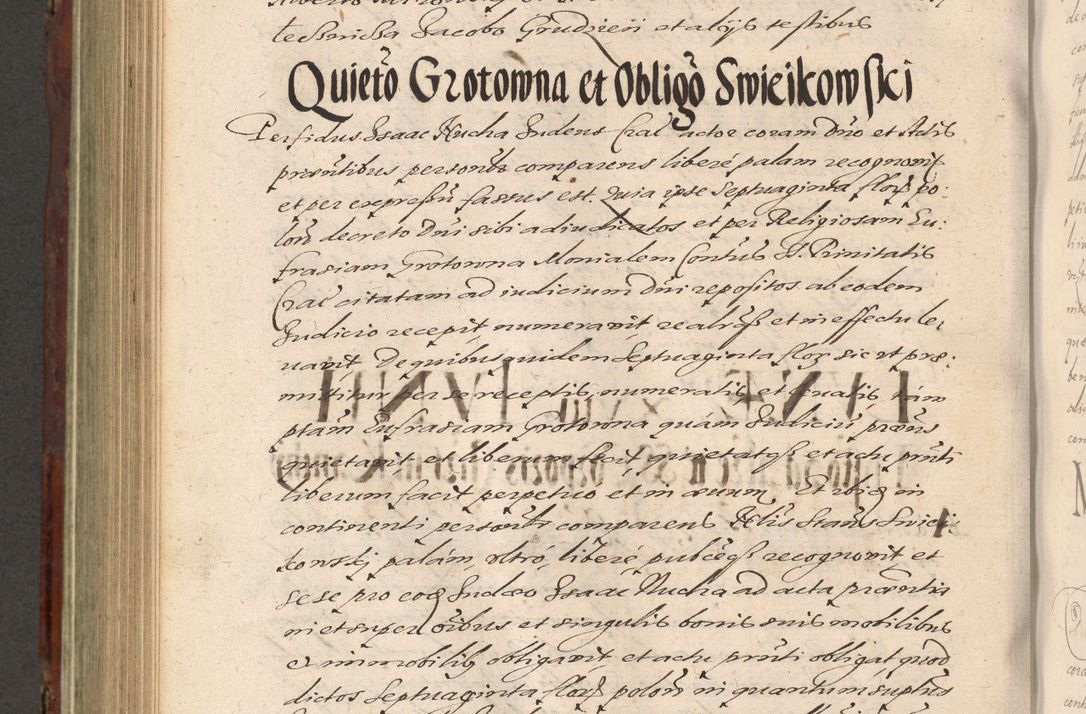 te Smissa Jacobo Grudzien et alijs testibus
Quietõ Grotowna et Obligõ Swieikowski
Perfidus Isaac Rucha Judeus Cral actor coram Dño et Actis
præntibus personlr comparens libere palam recognovit
et per expressũ fassus est. Quia ipse septuaginta flor po:
lon decreto Dñi sibi adiudicatos et per Religiosam Eu:
frasiam Grotowna Monialem Contus S. Trinitatis
Cral citatam ad iudicium Dñi repositos ab eodem
Judicio recepit, numeravit, realrq et in effectu le,
vavit. De quibus quidem septuaginta flor sic ut præ:
mittitur per se receptis, numeratis et levatis tam
ptam Eufrasiam Grotowna quám Judiciũ præns
quietavit et liberum fecit quietatq et actu prñti
liberum facit perpetuo et in ævum, Et ibiq in
continenti personlr comparens Nlis Stans Swiei
kowskj palám, vltró, liberé, publceq recognovit et
se se pro eoq Judæo Isaac Rucha ad acta præntia
ni et super oibus et singulis bonis suis mobilibus
et immobilib obligavit et actu prñti obligat, quod
dictos septuaginta flor polon in quantum suptus